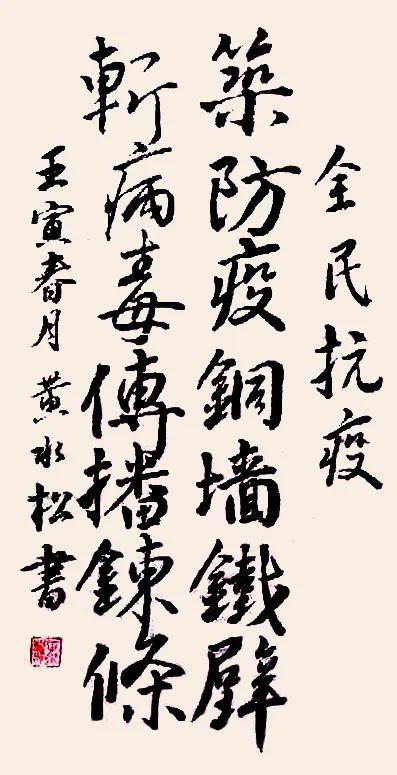 全民抗疫
築防疫銅墻鐵壁
斬病毒傳播鍊條
壬寅春月 黄水松書